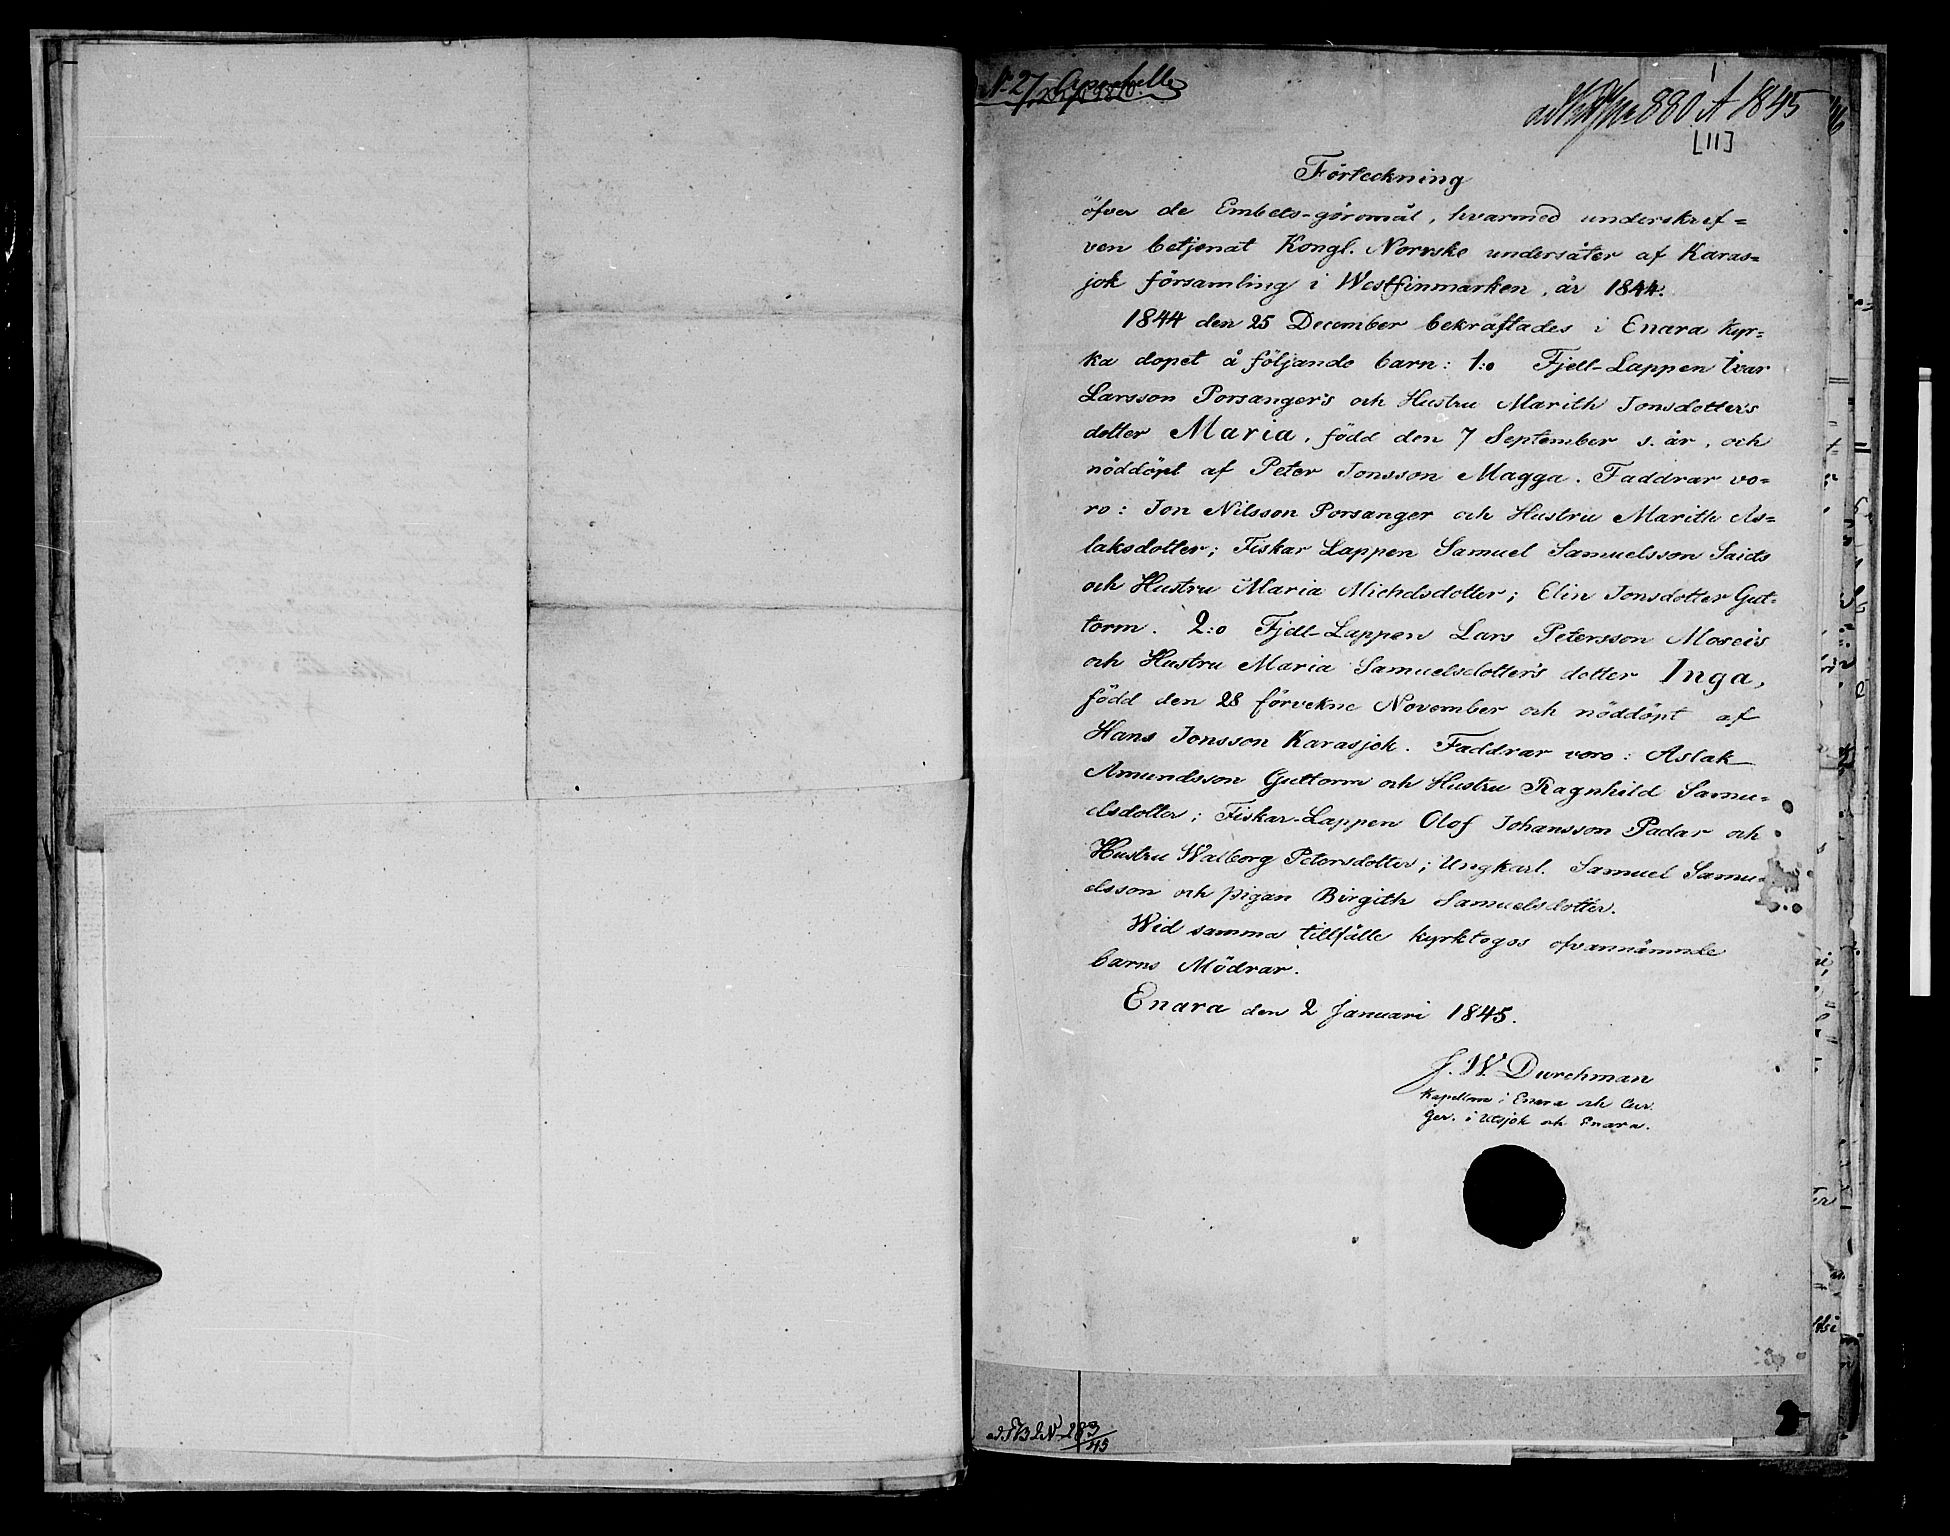 880 A 1845
[11]
Förteckning
öfver de Embets-göromål, hvarmed underskref=
ven betjenat Kongl. Norrske undersåter af Karas=
jok församling i Westfinmarken, år 1844.
1844 den 25 December bekräftades i Enara Kyr=
ka dopet å följande barn: 1:o Fjell-Lappen Ivar
Larsson Porsanger's och Hustru Marith Jonsdotters
dotter Maria, född den 7 September s. år, och
nöddöpt af Peter Jonsson Magga. Faddrar vo=
ro: Jon Nilsson Porsanger och Hustru Marith As=
laksdotter; Fiskar Lappen Samuel Samuelsson Saids
och Hustru Maria Michelsdotter; Elin Jonsdotter Gut=
torm. 2:o Fjell-Lappen Lars Petersson Moseis
och Hustru Maria Samuelsdotter's dotter Inga,
född den 28 förvekne November och nöddöpt af
Hans Jonsson Karasjok. Faddrar voro: Aslak
Amundsson Guttorm och Hustru Ragnhild Samu=
elsdotter; Fiskar-Lappen Olof Johansson Padar och
Hustru Walborg Petersdotter; Ungkarl. Samuel Samu=
elsson och pigan Birgith Samuelsdotter.
Wid samma tillfälle kyrktogos ofvannämnde
barns Mödrar.
Enara den 2 Januari 1845.
J. W. Durchman
Kapellan i Enara och Cur.
Ger. i Utsjok och Enara.